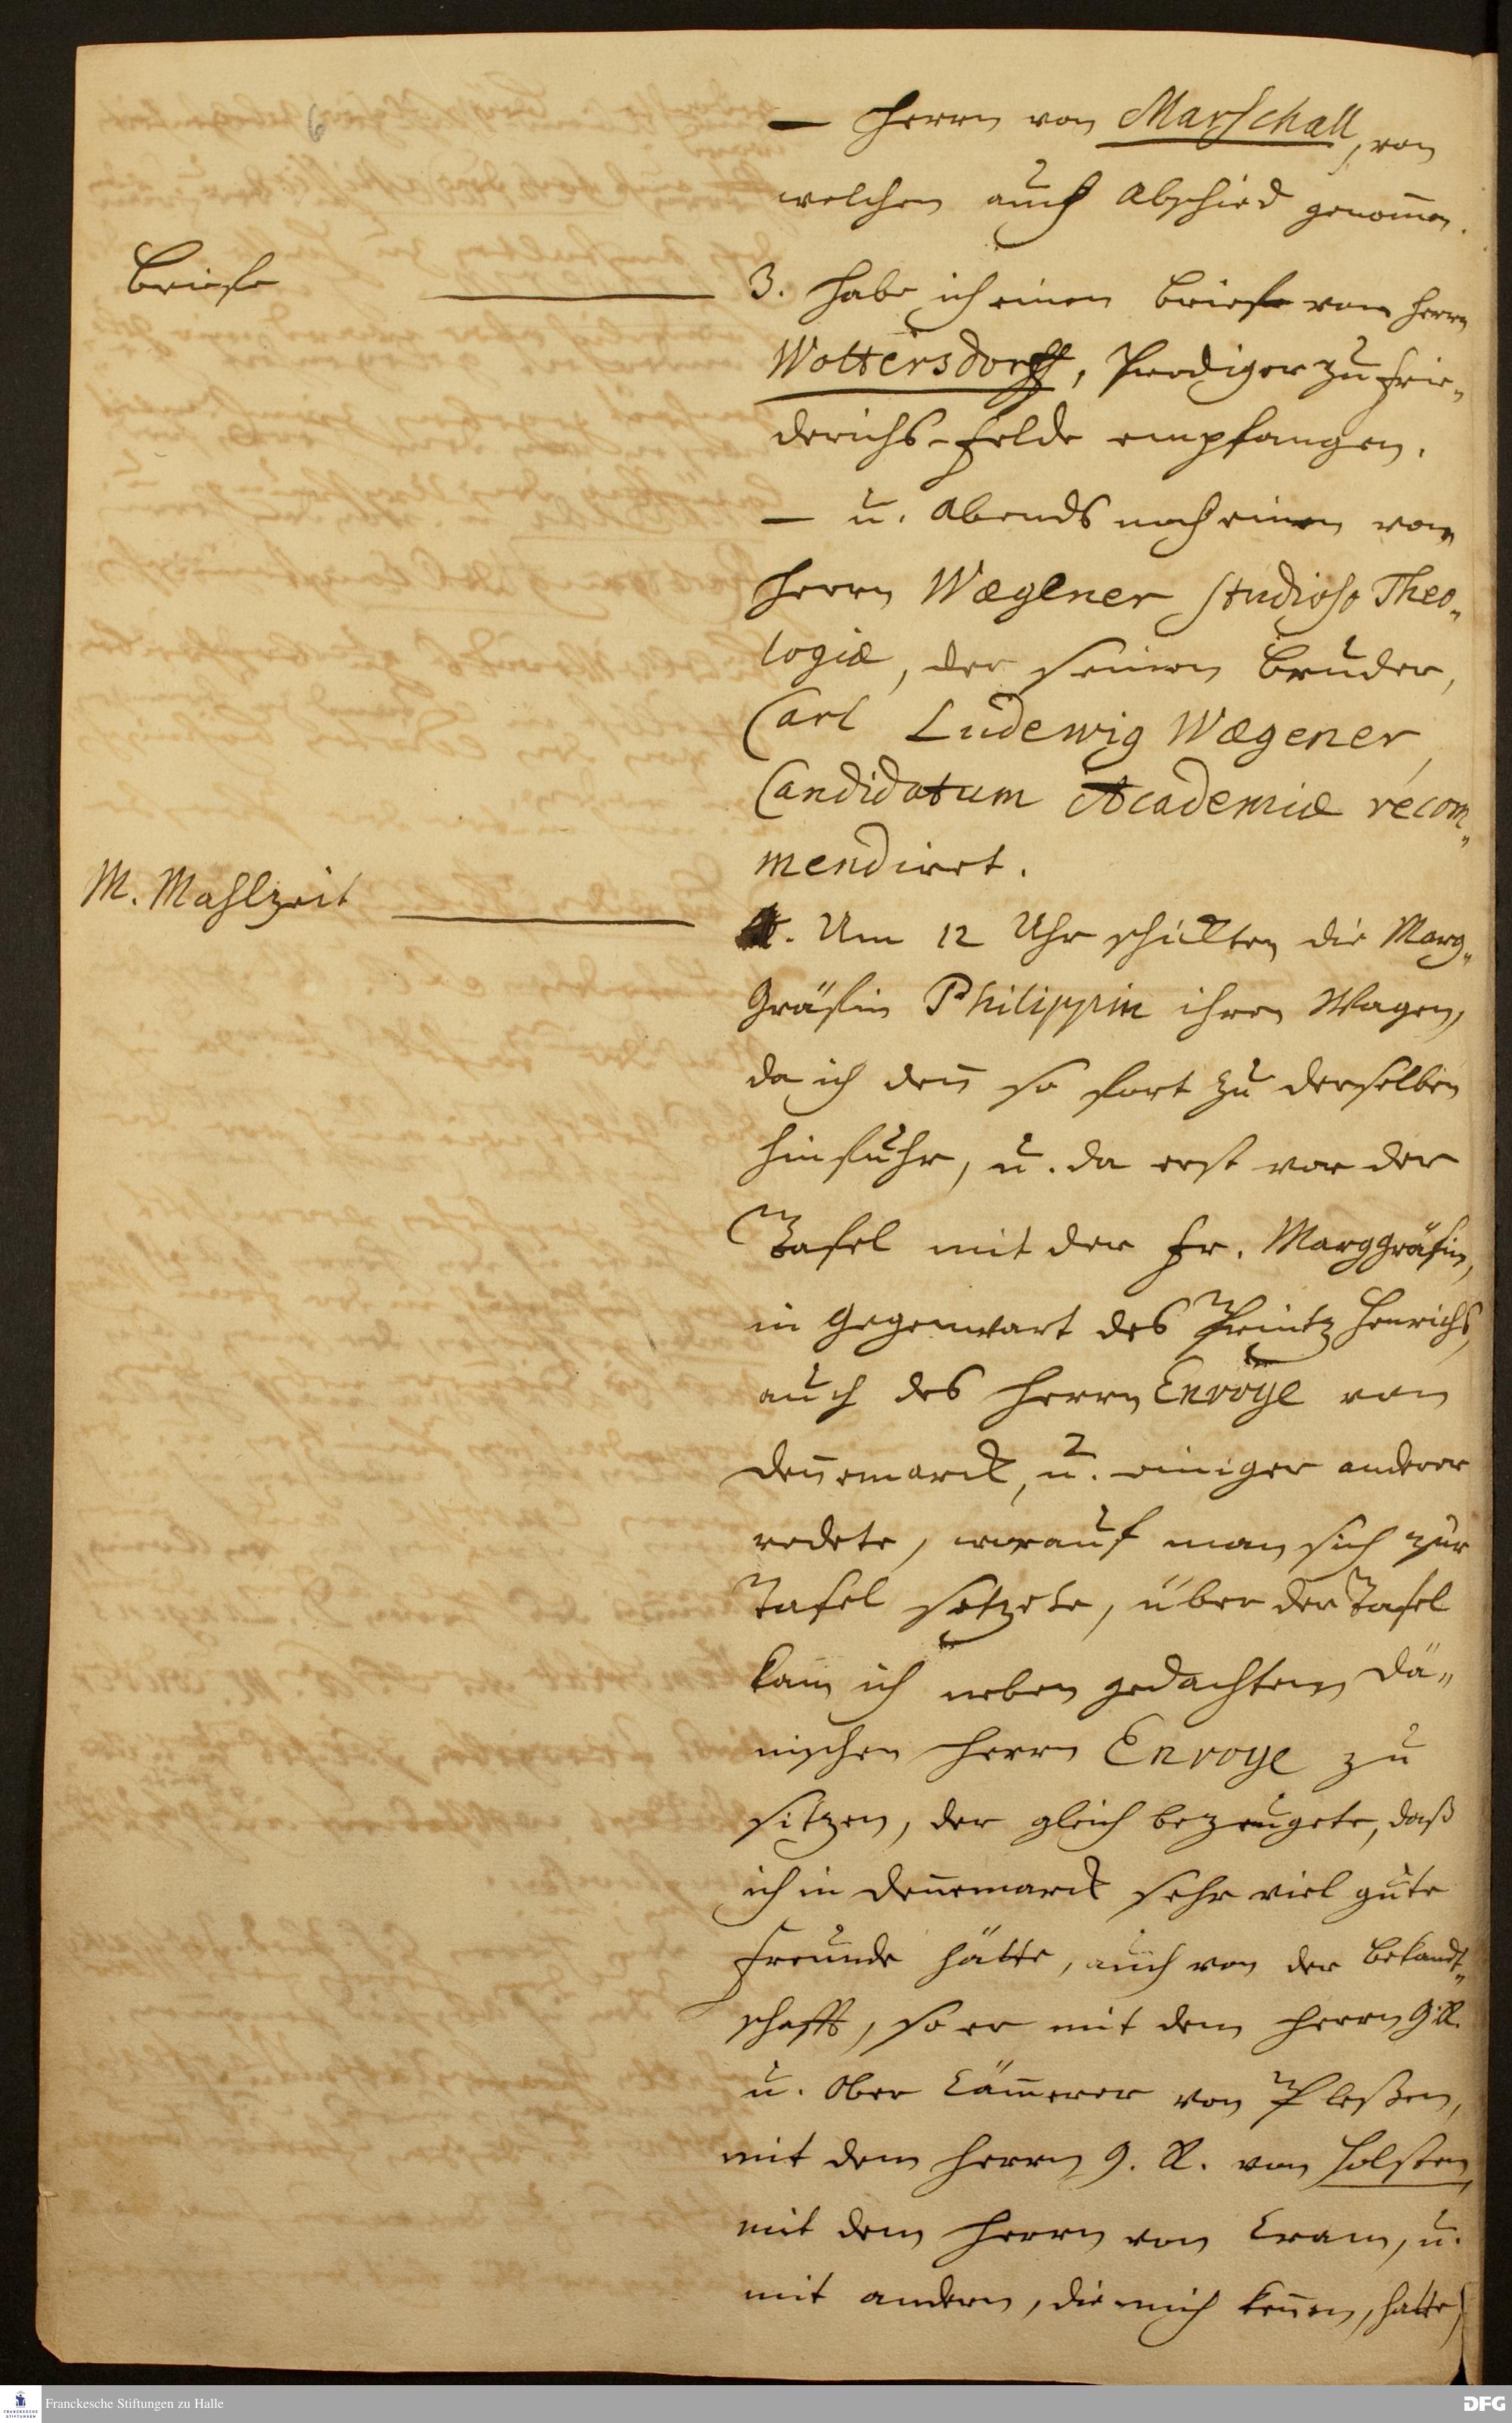 6
— Herrn von Marschall, von
welchen auch Abschied genomen.
Briefe
3. Habe ich einen Brief vom Herrn
Woltersdorff, Prediger zu Frie-
derichs-Felde empfangen.
— u. Abends noch einen von
Herrn Wægener Studioso Theo-
logiæ, der seinen Bruder,
Carl Ludewig Wægener,
Candidatum Academiæ recom-
mendirt.
M. Mahlzeit
4. Um 12 Uhr schickten die Marg-
Gräfin Philippin ihren Wagen,
da ich den so fort zu derselben
hinfuhr, u. da erst vor der
Tafel mit der Fr. Marggräfin,
in Gegenwart des Printz Henrichs,
auch des Herrn Envoye von
Dennemarck, u. einiger anderer
redete, worauf man sich zur
Tafel setzete, über der Tafel
kam ich neben gedachten Dä-
nischen Herrn Envoye zu
sitzen, der gleich bezeugete, daß
ich in Dennemarck sehr viel gute
Freunde hätte, auch von der Bekandt-
schafft, so er mit dem Herrn G. R.
u. Ober Cämmerer von Pleßen,
mit dem Herrn G. R. von Holsten,
mit dem Herrn von Cram, u.
mit andern, die mich kennen, hatte,
Franckesche Stiftungen zu Halle
DFG